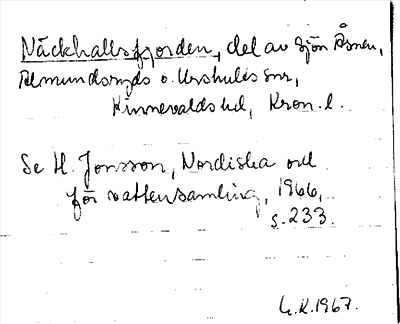 Näckhallsfjorden, del av sjön Åsnen,
Almundsryds o. Urshults snr,
Kinnevalds hd, Kron. l.
Se H. Jonsson, Nordiska ord
för vattensamling, 1966,
s. 233.
G.K. 1967.